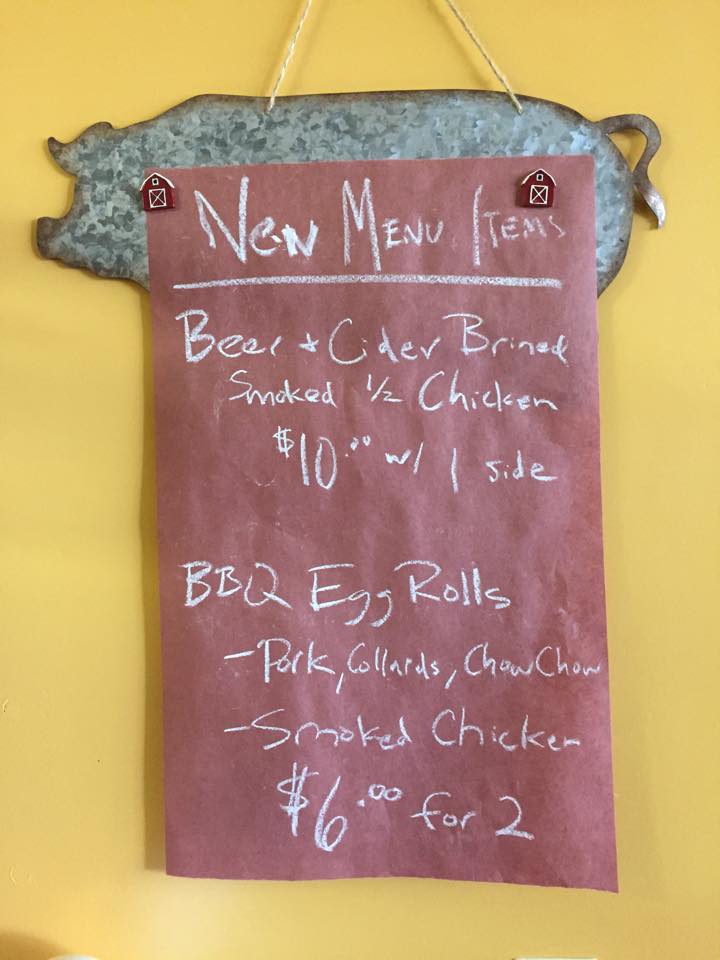 New Menu Items
Beer & Cider Brined
Smoked 1/2 Chicken
$10.00 w/ 1 side
BBQ Egg Rolls
- Pork, Collards, Chow Chow
- Smoked Chicken
$6.00 for 2